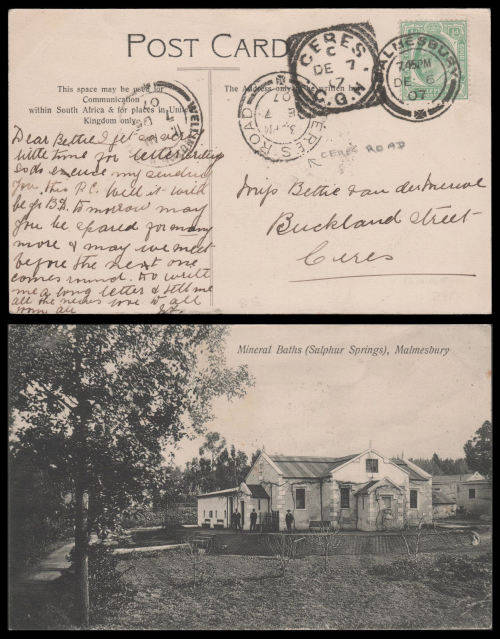 POST CARD
This space may be used for
Communication
within South Africa & for places in United
Kingdom only.
The Address only to be written here
CERES
C
DE 7
07
C.G.H
MALMESBURY
7.45PM
DE 6
07
CERES ROAD
DE 7
07
CERES ROAD
Dear Bettie I get so
little time for letter writing
so do excuse my sending
you this P.C. Well it will
be yr B.D. to morrow may
you be spared for many
more & may we meet
before the next one
comes round. Do write
me a long letter & tell me
all the news love to all
from all
Miss Bettie van der Merwe
Buckland Street
Ceres
Mineral Baths (Sulphur Springs), Malmesbury